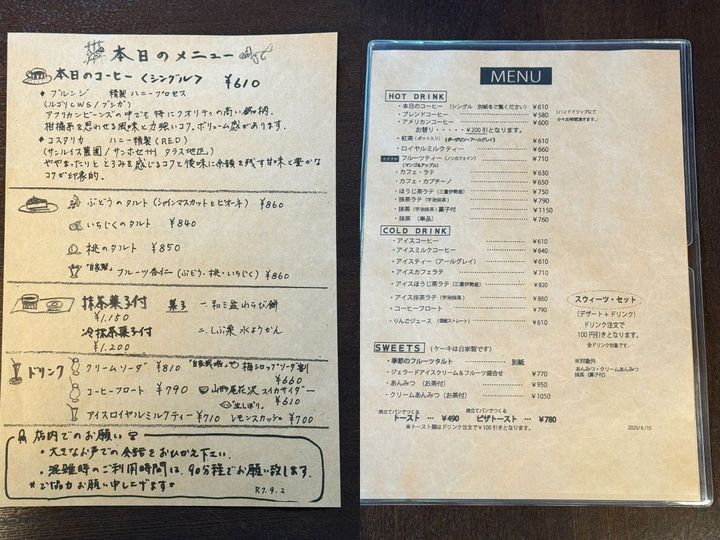 本日のメニュー
本日のコーヒー〈シングル〉 ¥610
◆ ブルンジ 精製 ハニープロセス
(ルゴリCWS/ブジガ)
アフリカンビーンズの中でも特にクオリティの高い銘柄。
柑橘系を思わせる風味と力強いコク、ボリューム感があります。
◆ コスタリカ ハニー精製(RED)
(サンルイス農園/サンホセ州 タラス地区)
ややまったりと とろみを感じるコクと後味に余韻を残す甘味と豊かな
コクが印象的。
ぶどうのタルト(シャインマスカットとピオーネ) ¥860
いちじくのタルト ¥840
桃のタルト ¥850
"自家製" フルーツ杏仁(ぶどう・桃・いちじく) ¥860
抹茶菓子付 菓子 一、和三盆わらび餅
¥1,150
冷抹茶菓子付 二、しぶ栗 水ようかん
¥1,200
ドリンク
クリームソーダ ¥810
梅シロップソーダ割
¥660
コーヒーフロート ¥790
山形尾花沢 スイカサイダー
¥610
アイスロイヤルミルクティー ¥710
生しぼり。
レモンスカッシュ ¥700
店内でのお願い
・大きなお声での会話をおひかえ下さい。
・混雑時のご利用時間は、90分程でお願い致します。
*ご協力お願い申し上げます*
R7.9.2
MENU
HOT DRINK
・本日のコーヒー (シングル 別紙をご覧ください) ¥610
・ブレンドコーヒー ¥580
・アメリカンコーヒー ¥600
(ハンドドリップにて
少々お時間頂きます。)
お替り ¥200引となります。
・紅茶(ポット入り) (ダージリン・アールグレイ) ¥610
・ロイヤルミルクティー ¥660
おすすめ フルーツティー (ノンカフェイン) ¥710
(マンゴ&アップル)
・カフェ・ラテ ¥630
・カフェ・カプチーノ ¥650
・ほうじ茶ラテ (三重伊勢産) ¥750
・抹茶ラテ (宇治抹茶) ¥790
・抹茶 (宇治抹茶) 菓子付 ¥1150
・抹茶 (単品) ¥760
COLD DRINK
・アイスコーヒー ¥610
・アイスミルクコーヒー ¥640
・アイスティー (アールグレイ) ¥610
・アイスカフェラテ ¥710
・アイスほうじ茶ラテ (三重伊勢産) ¥820
・アイス抹茶ラテ (宇治抹茶) ¥860
・コーヒーフロート ¥790
・りんごジュース (国産ストレート) ¥610
スウィーツ・セット
(デザート+ドリンク)
ドリンク注文で
100円引きとなります。
(全ドリンク対象です。
※対象外
あんみつ・クリームあんみつ
抹茶 (菓子付)
SWEETS (ケーキは自家製です)
・季節のフルーツタルト 別紙
・ジェラードアイスクリーム&フルーツ盛合せ ¥770
・あんみつ (お茶付) ¥950
・クリームあんみつ (お茶付) ¥1050
焼立てパンでつくる
トースト … ¥490
焼立てパンでつくる
ピザトースト … ¥780
※トースト類はドリンク注文で¥100引きとなります。
2025/6/15